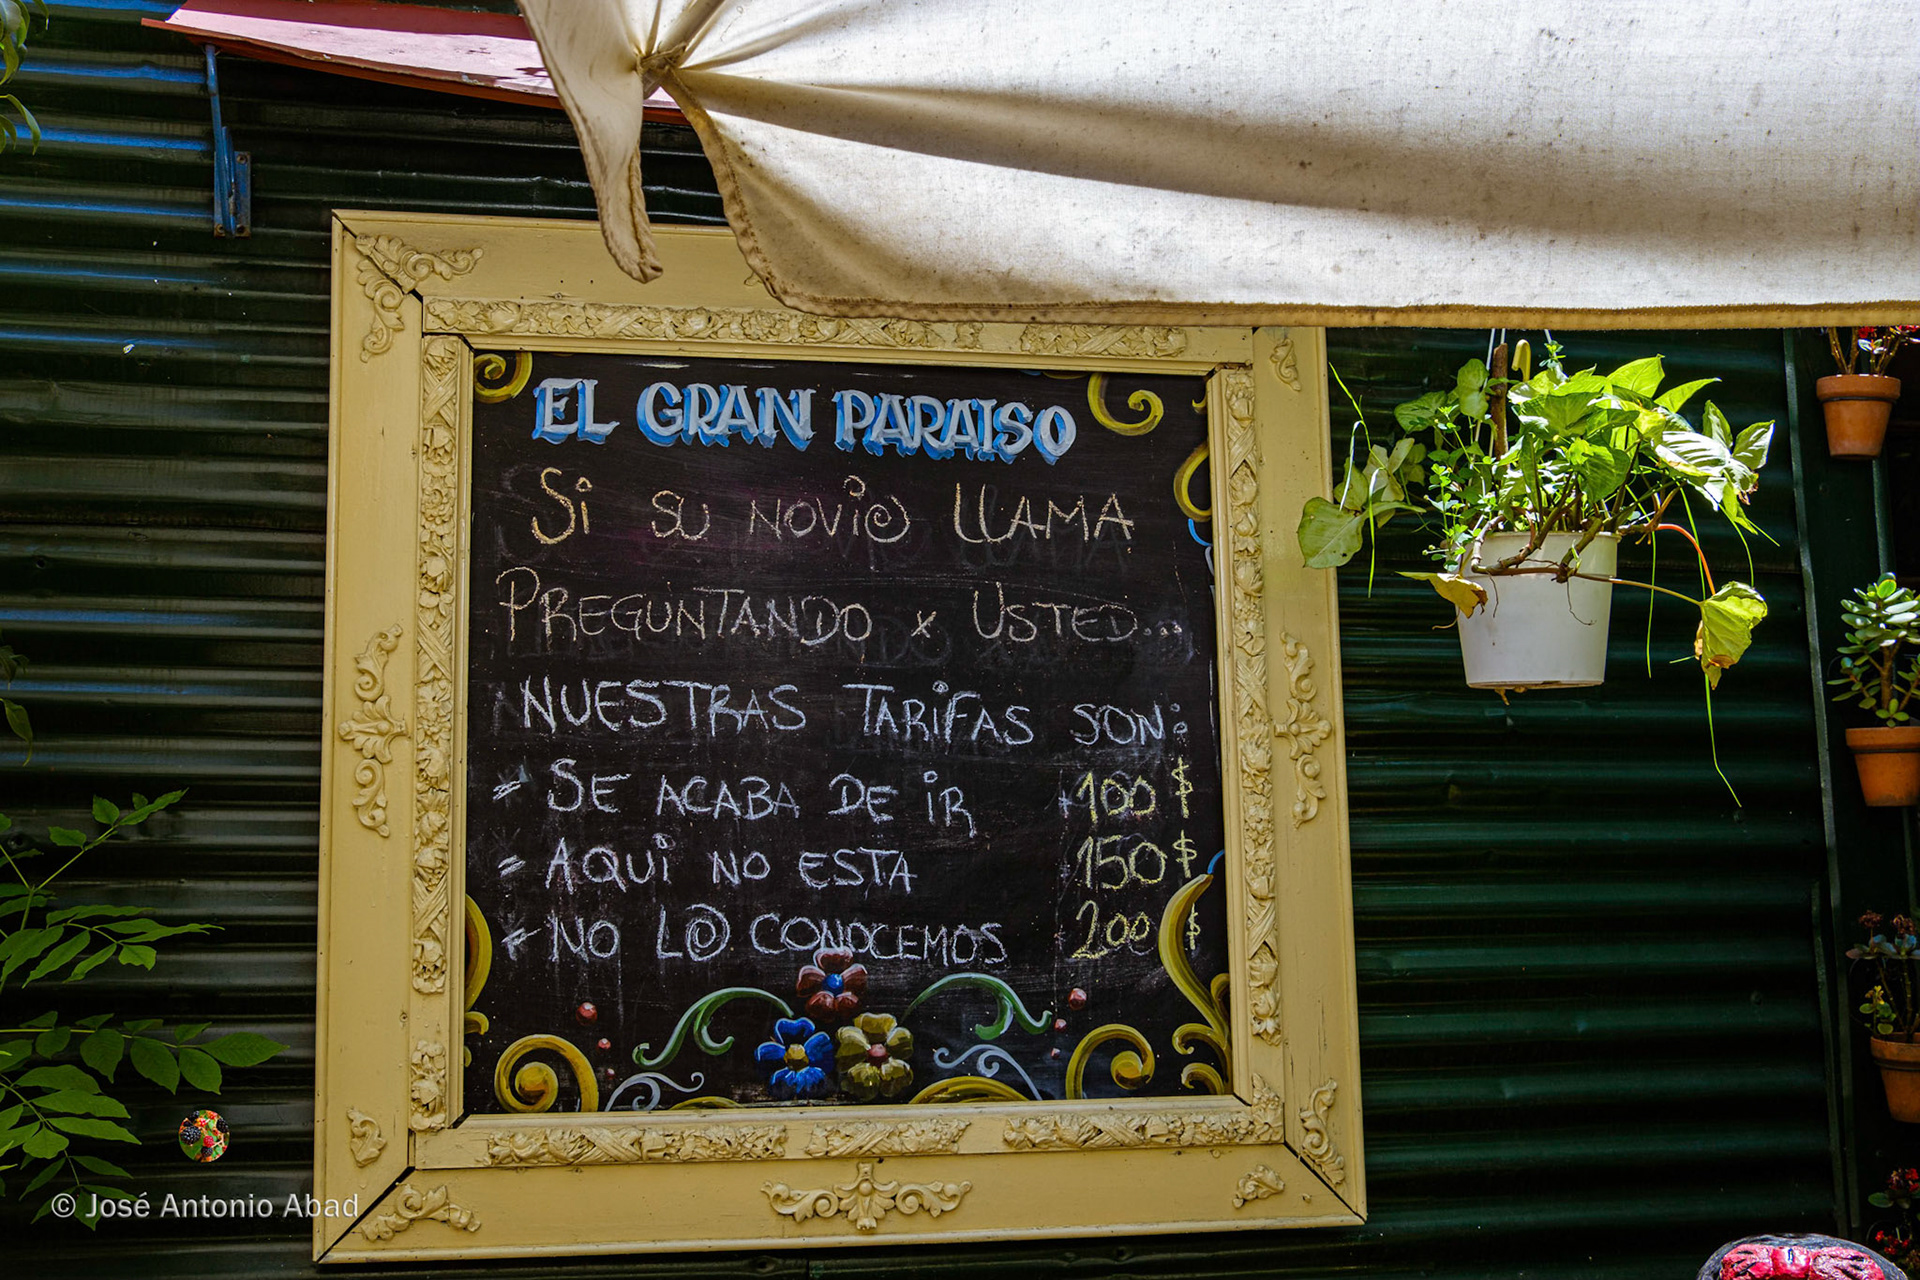 EL GRAN PARAISO
Si SU NOVi@ LLAMA
PREGUNTANDO x USTED...
NUESTRAS TARiFAS SON:
- SE ACABA DE iR 100 $
- AQUi NO ESTA 150 $
- NO L@ CONOCEMOS 200 $
© José Antonio Abad